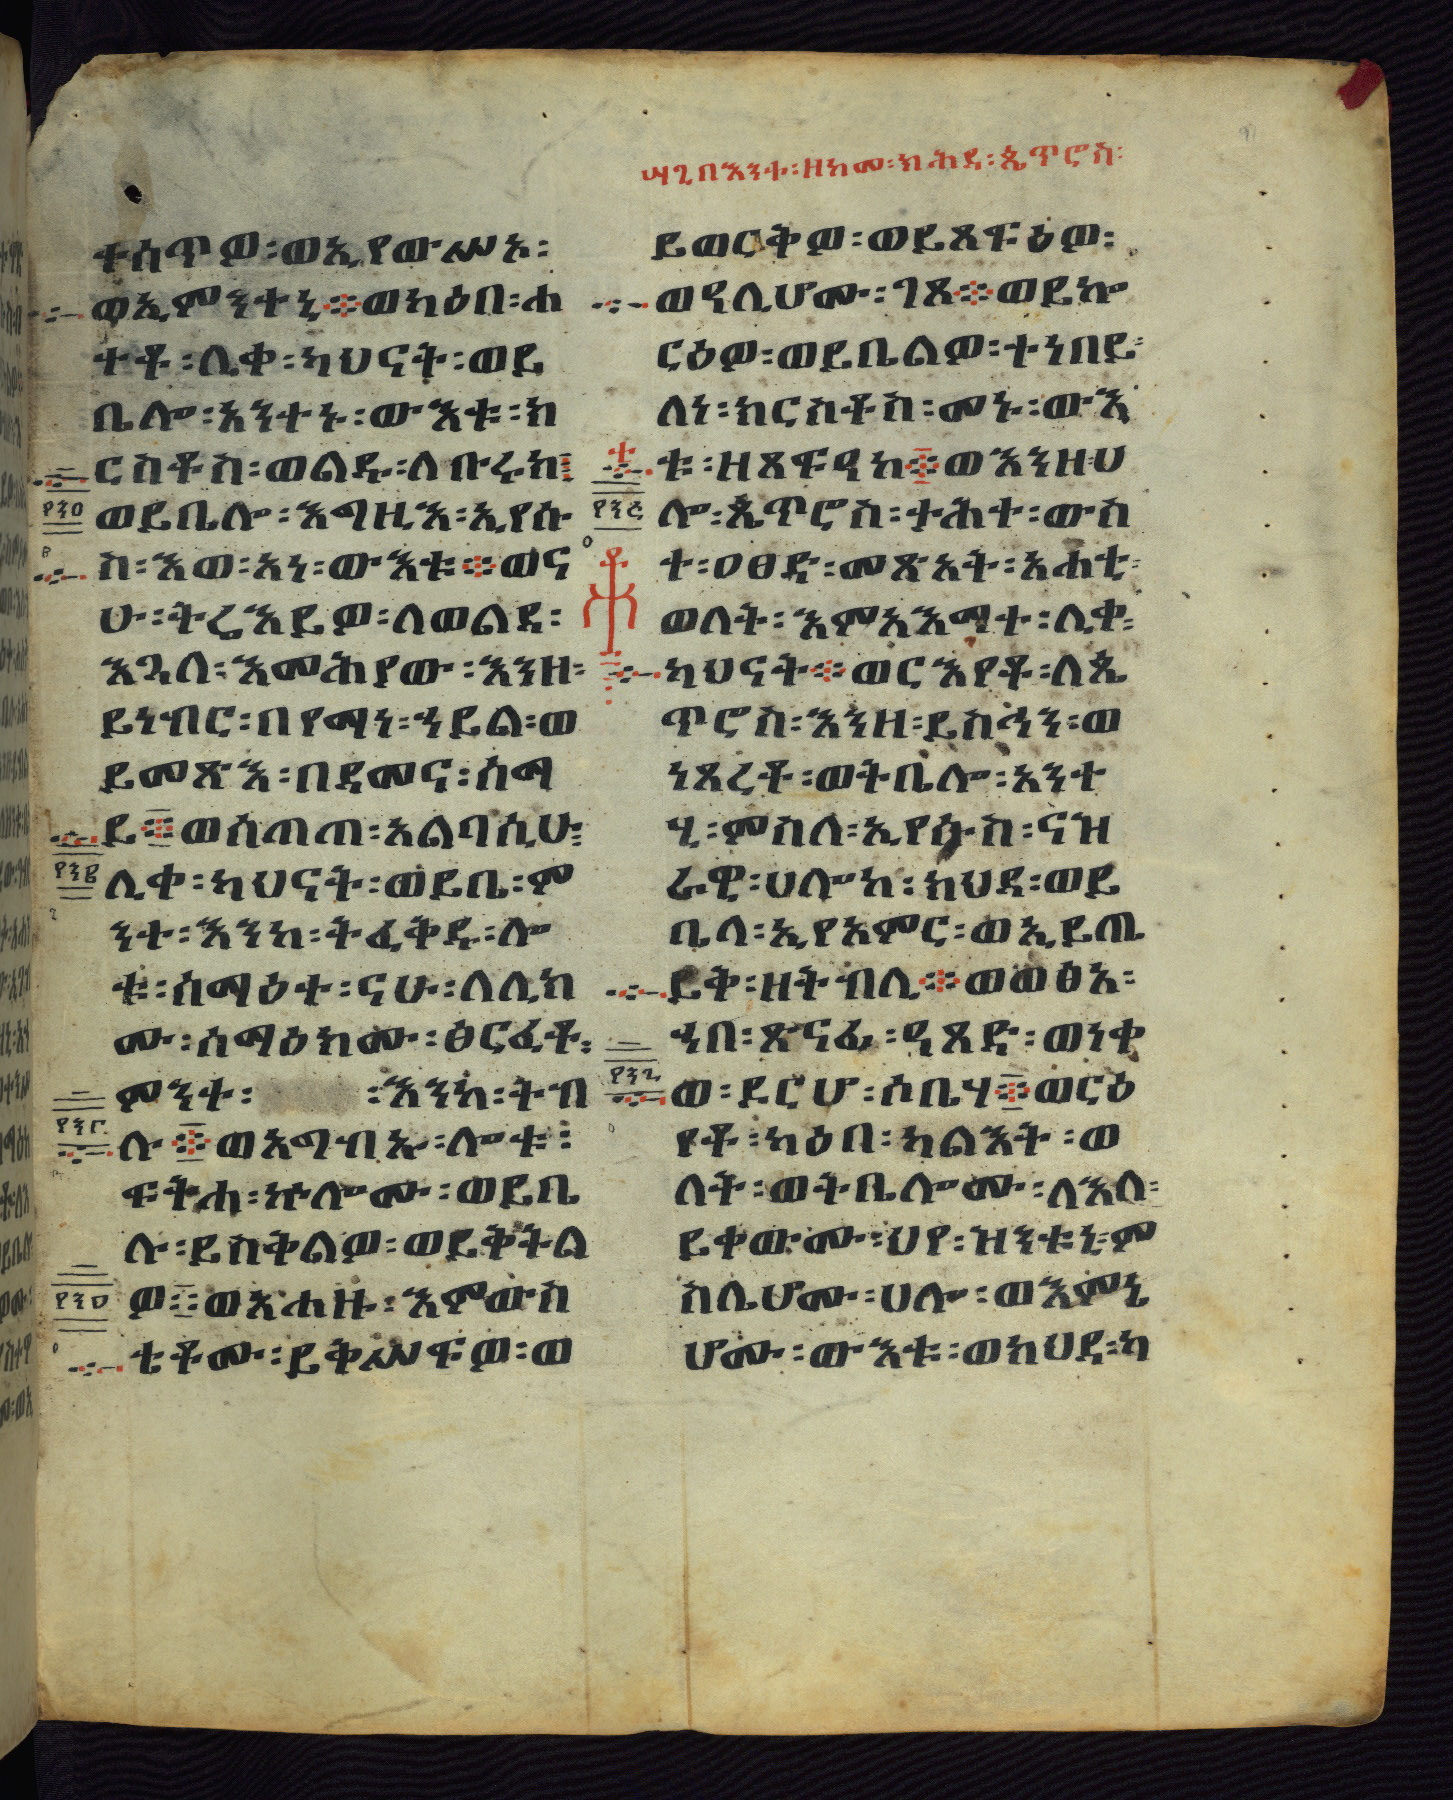 ሣጊ በእንተ፡ዘከመ፡ክሕደ፡ጴጥሮስ፡
ተሰጥዎ፡ወኢያውሥአ፡
ወኢምንተኒ፨ወካዕበ፡ሐ
ተቶ፡ሊቀ፡ካህናት፡ወይ
ቤሎ፡አንተኑ፡ውእቱ፡ክ
ርስቶስ፡ወልዱ፡ለቡሩክ፤
ወይቤሎ፡እግዚእ፡ኢየሱ
ስ፡እወ፡አነ፡ውእቱ፨ወና
ሁ፡ትሬእይዎ፡ለወልደ፡
እጓለ፡እመሕያው፡እንዘ፡
ይነብር፡በየማነ፡ኀይል፡ወ
ይመጽእ፡በደመና፡ሰማ
ይ፨ወሰጠጠ፡አልባሲሁ፡
ሊቀ፡ካህናት፡ወይቤ፡ም
ንተ፡እንከ፡ትፈቅዱ፡ሎ
ቱ፡ሰማዕተ፡ናሁ፡ለሊክ
ሙ፡ሰማዕክሙ፡ፅርፈቶ፡
ምንተ፡ ፡እንከ፡ትብ
ሉ፨ወአግብኡ፡ሎቱ፡
ፍትሐ፡ኵሎሙ፡ወይቤ
ሉ፡ይስቅልዎ፡ወይቅትል
ዎ፨ወአሐዙ፡እምውስ
ቴቶሙ፡ይቅሥፍዎ፡ወ
ይወርቅዎ፡ወይጸፍዕዎ፡
ወዳሊሆሙ፡ገጸ፨ወይኰ
ርዕዎ፡ወይቤልዎ፡ተነበይ፡
ለነ፡ክርስቶስ፡መኑ፡ውእ
ቱ፡ዘጸፍዓከ፨ወእንዘ፡ሀ
ሎ፡ጴጥሮስ፡ታሕተ፡ውስ
ተ፡ዐፀድ፡መጽአት፡አሐቲ፡
ወለት፡እምአእማተ፡ሊቀ፡
ካህናት፨ወርእየቶ፡ለጴ
ጥሮስ፡እንዘ፡ይስሕን፡ወ
ነጸረቶ፡ወትቤሎ፡አንተ
ሂ፡ምስለ፡ኢየሱስ፡ናዝ
ራዊ፡ሀሎከ፡ክህደ፡ወይ
ቤላ፡ኢየአምር፡ወኢይጤ
ይቅ፡ዘትብሊ፨ወወፅአ፡
ኀበ፡ጽናፌ፡ዓጸድ፡ወነቀ
ወ፡ደርሆ፡ሶቤሃ፨ወርዕ
የቶ፡ካዕበ፡ካልእት፡ወ
ለት፡ወትቤሎሙ፡ለእለ፡
ይቀውሙ፡ህየ፡ዝንቱኒ፡ም
ስሌሆሙ፡ሀሎ፡ወእምኒ
ሆሙ፡ውእቱ፡ወክህደ፡ካ